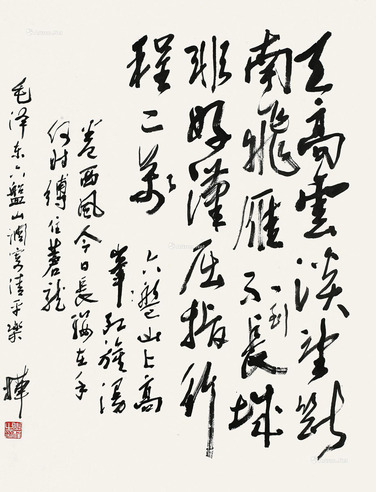 天高雲淡望斷
南飛雁不到長城
非好漢屈指行
程二萬
六盤山上高
峯红旗漫
卷西风今日長纓在手
何时縛住蒼龍
毛泽东六盤山調寄清平樂